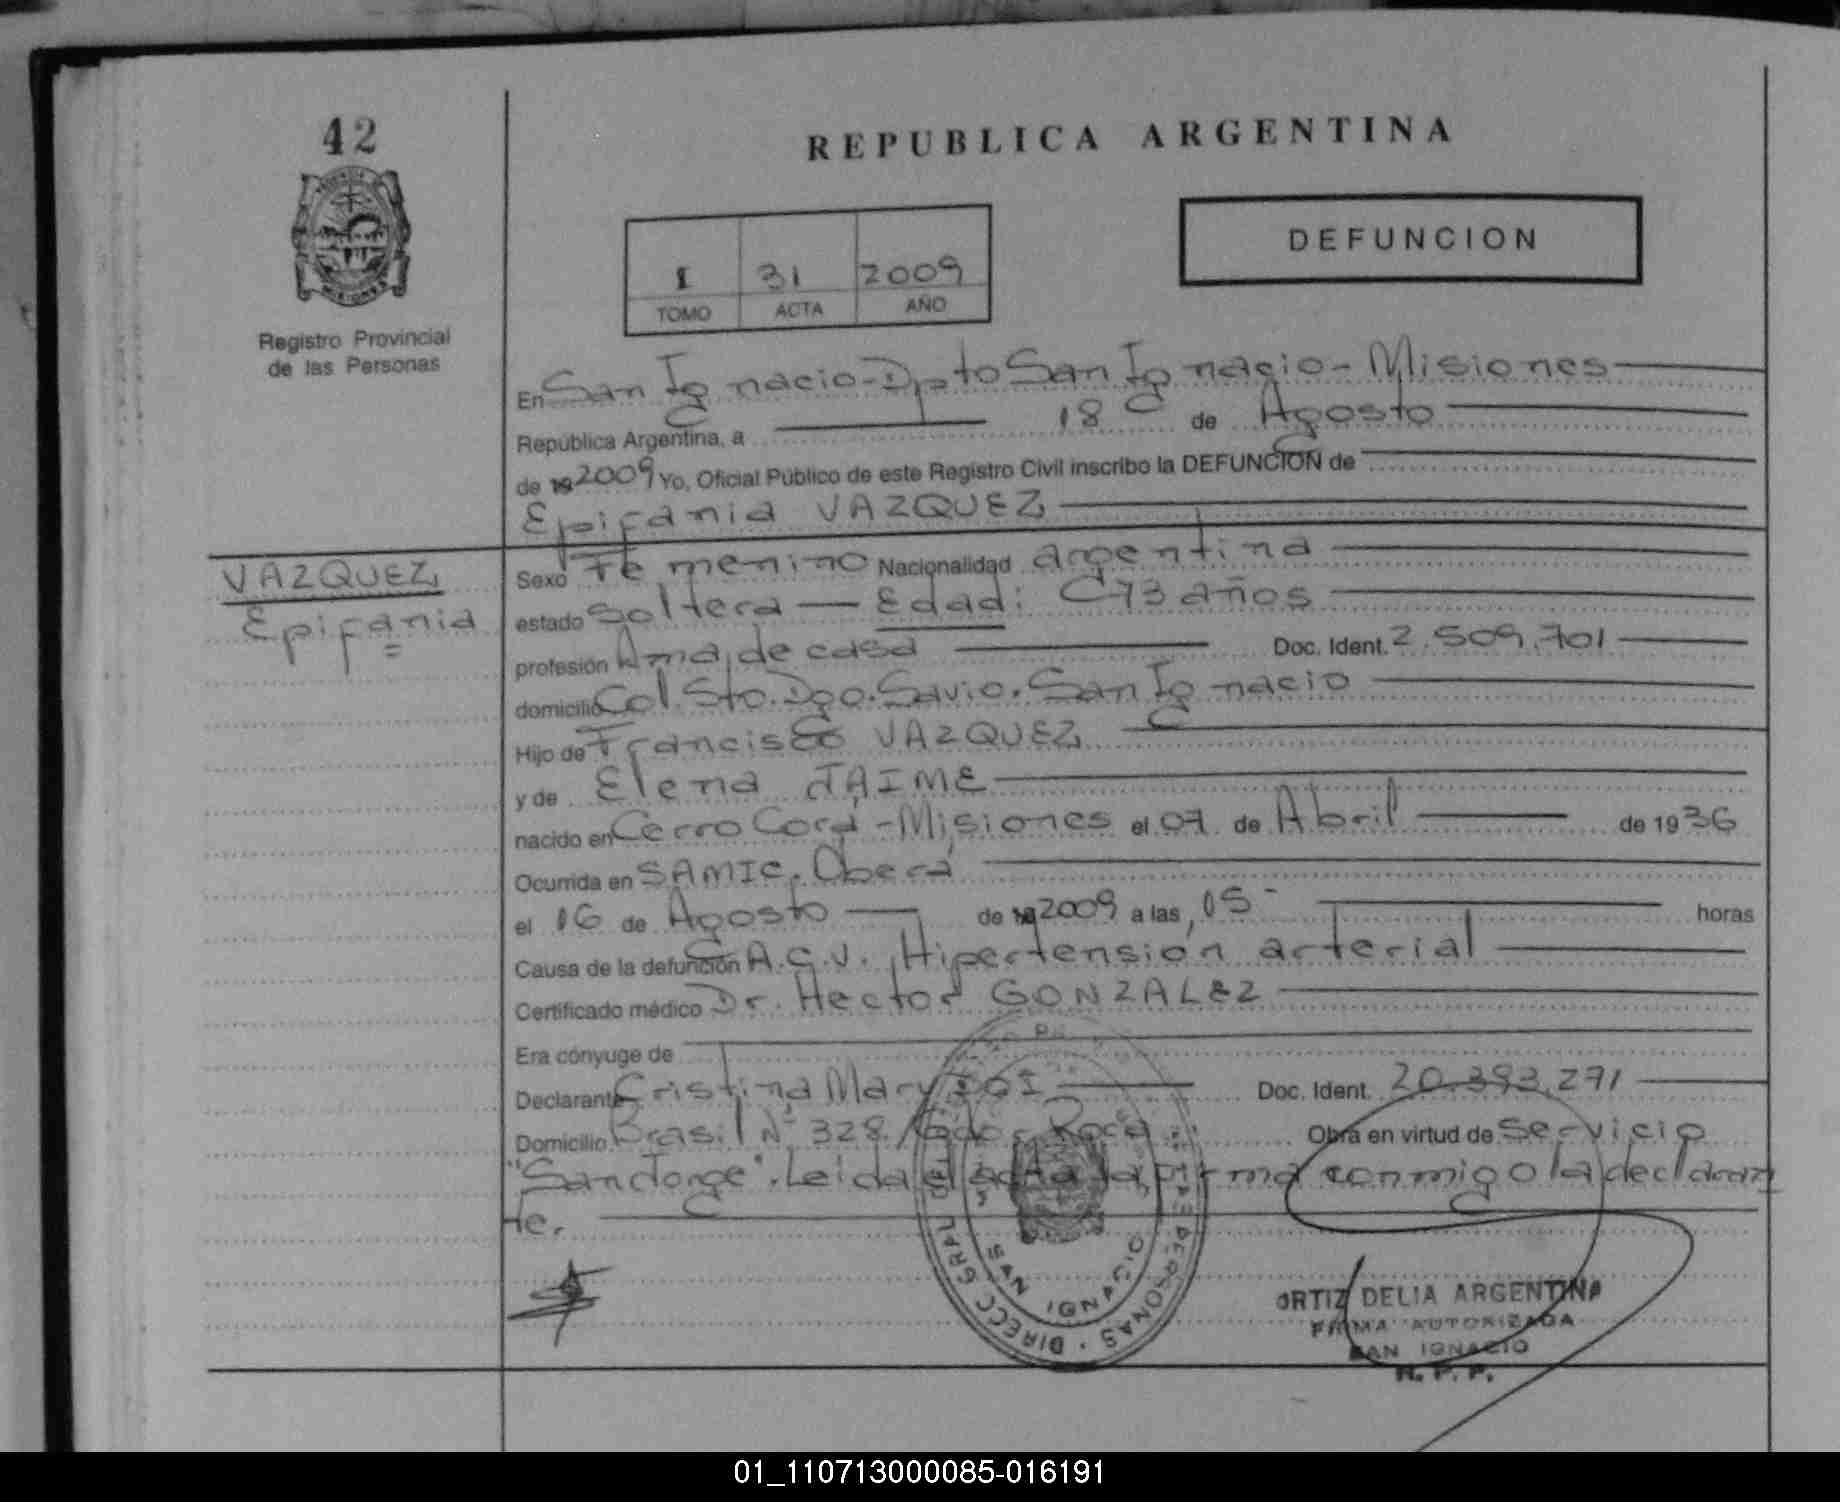 42
REPUBLICA ARGENTINA
MISIONES
Registro Provincial
de las Personas
I 31 2009
TOMO ACTA AÑO
DEFUNCION
En San Ignacio-Dpto San Ignacio-Misiones
República Argentina, a 18 de Agosto
de 19 2009 Yo, Oficial Público de este Registro Civil inscribo la DEFUNCION de
Epifania VAZQUEZ
VAZQUEZ
Epifania
Sexo Femenino Nacionalidad argentina
estado soltera — Edad: 73 años
profesión Ama de casa Doc. Ident. 2.509.701
domicilio Col. Sto. Dgo. Savio. San Ignacio
Hijo de Francisco VAZQUEZ
y de Elena JAIME
nacido en Cerro Corá-Misiones el 07 de Abril de 1936
Ocurrida en SAMIC. Oberá
el 16 de Agosto de 19 2009 a las 05- horas
Causa de la defunción A.C.V. Hipertensión arterial
Certificado médico Dr. Hector GONZALEZ
Era cónyuge de
Declarante Cristina Mary Doc. Ident. 20.393.271
Domicilio Brasil Nº 328. Gdor. Roca. Obra en virtud de Servicio
"San Jorge". Leída el acta la firma conmigo la declaran
te.
DIRECC GRAL DEL PERSONAS
SAN IGNACIO
ORTIZ DELIA ARGENTINA
FIRMA AUTORIZADA
SAN IGNACIO
R. P. P.
01_110713000085-016191